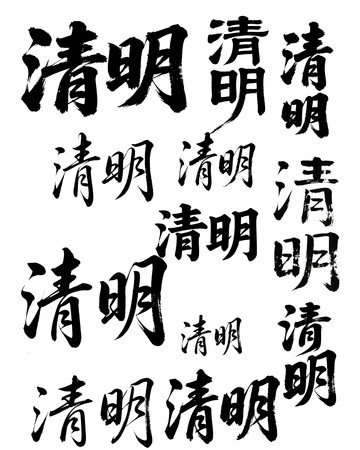 清明
清明
清明
清明
清明
清明
清明
清明
清明
清明
清明
清明